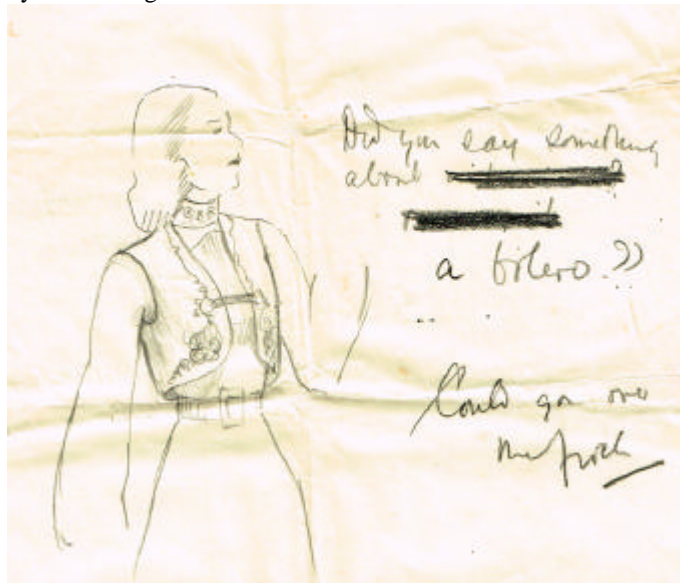 Did you say something
about
a bolero.??
Could go over
frock